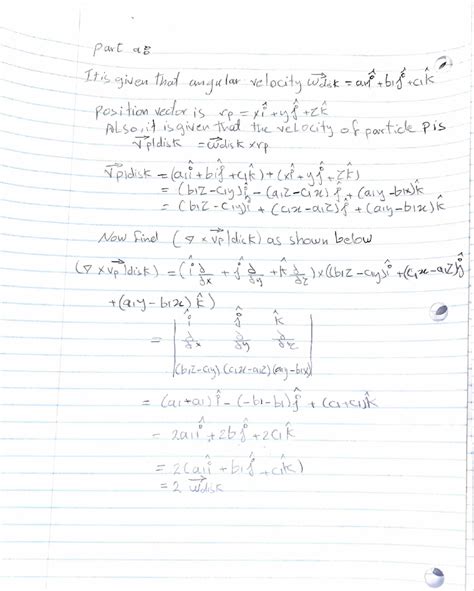 part a:
It is given that angular velocity ω⃗disk = a₁î + b₁ĵ + c₁k̂
position vector is rp = xî + yĵ + zk̂
Also, it is given that the velocity of particle p is
v⃗p|disk = ω⃗disk × rp
v⃗p|disk = (a₁î + b₁ĵ + c₁k̂) + (xî + yĵ + zk̂)
= (b₁z - c₁y)î - (a₁z - c₁x)ĵ + (a₁y - b₁x)k̂
= (b₁z - c₁y)î + (c₁x - a₁z)ĵ + (a₁y - b₁x)k̂
Now find (∇ × v⃗p|disk) as shown below
(∇ × v⃗p|disk) = (î ∂/∂x + ĵ ∂/∂y + k̂ ∂/∂z) × ((b₁z - c₁y)î + (c₁x - a₁z)ĵ
+ (a₁y - b₁x)k̂)
= | î ĵ k̂ |
| ∂/∂x ∂/∂y ∂/∂z |
| (b₁z - c₁y) (c₁x - a₁z) (a₁y - b₁x) |
= (a₁ + a₁)î - (-b₁ - b₁)ĵ + (c₁ + c₁)k̂
= 2a₁î + 2b₁ĵ + 2c₁k̂
= 2(a₁î + b₁ĵ + c₁k̂)
= 2 ω⃗disk